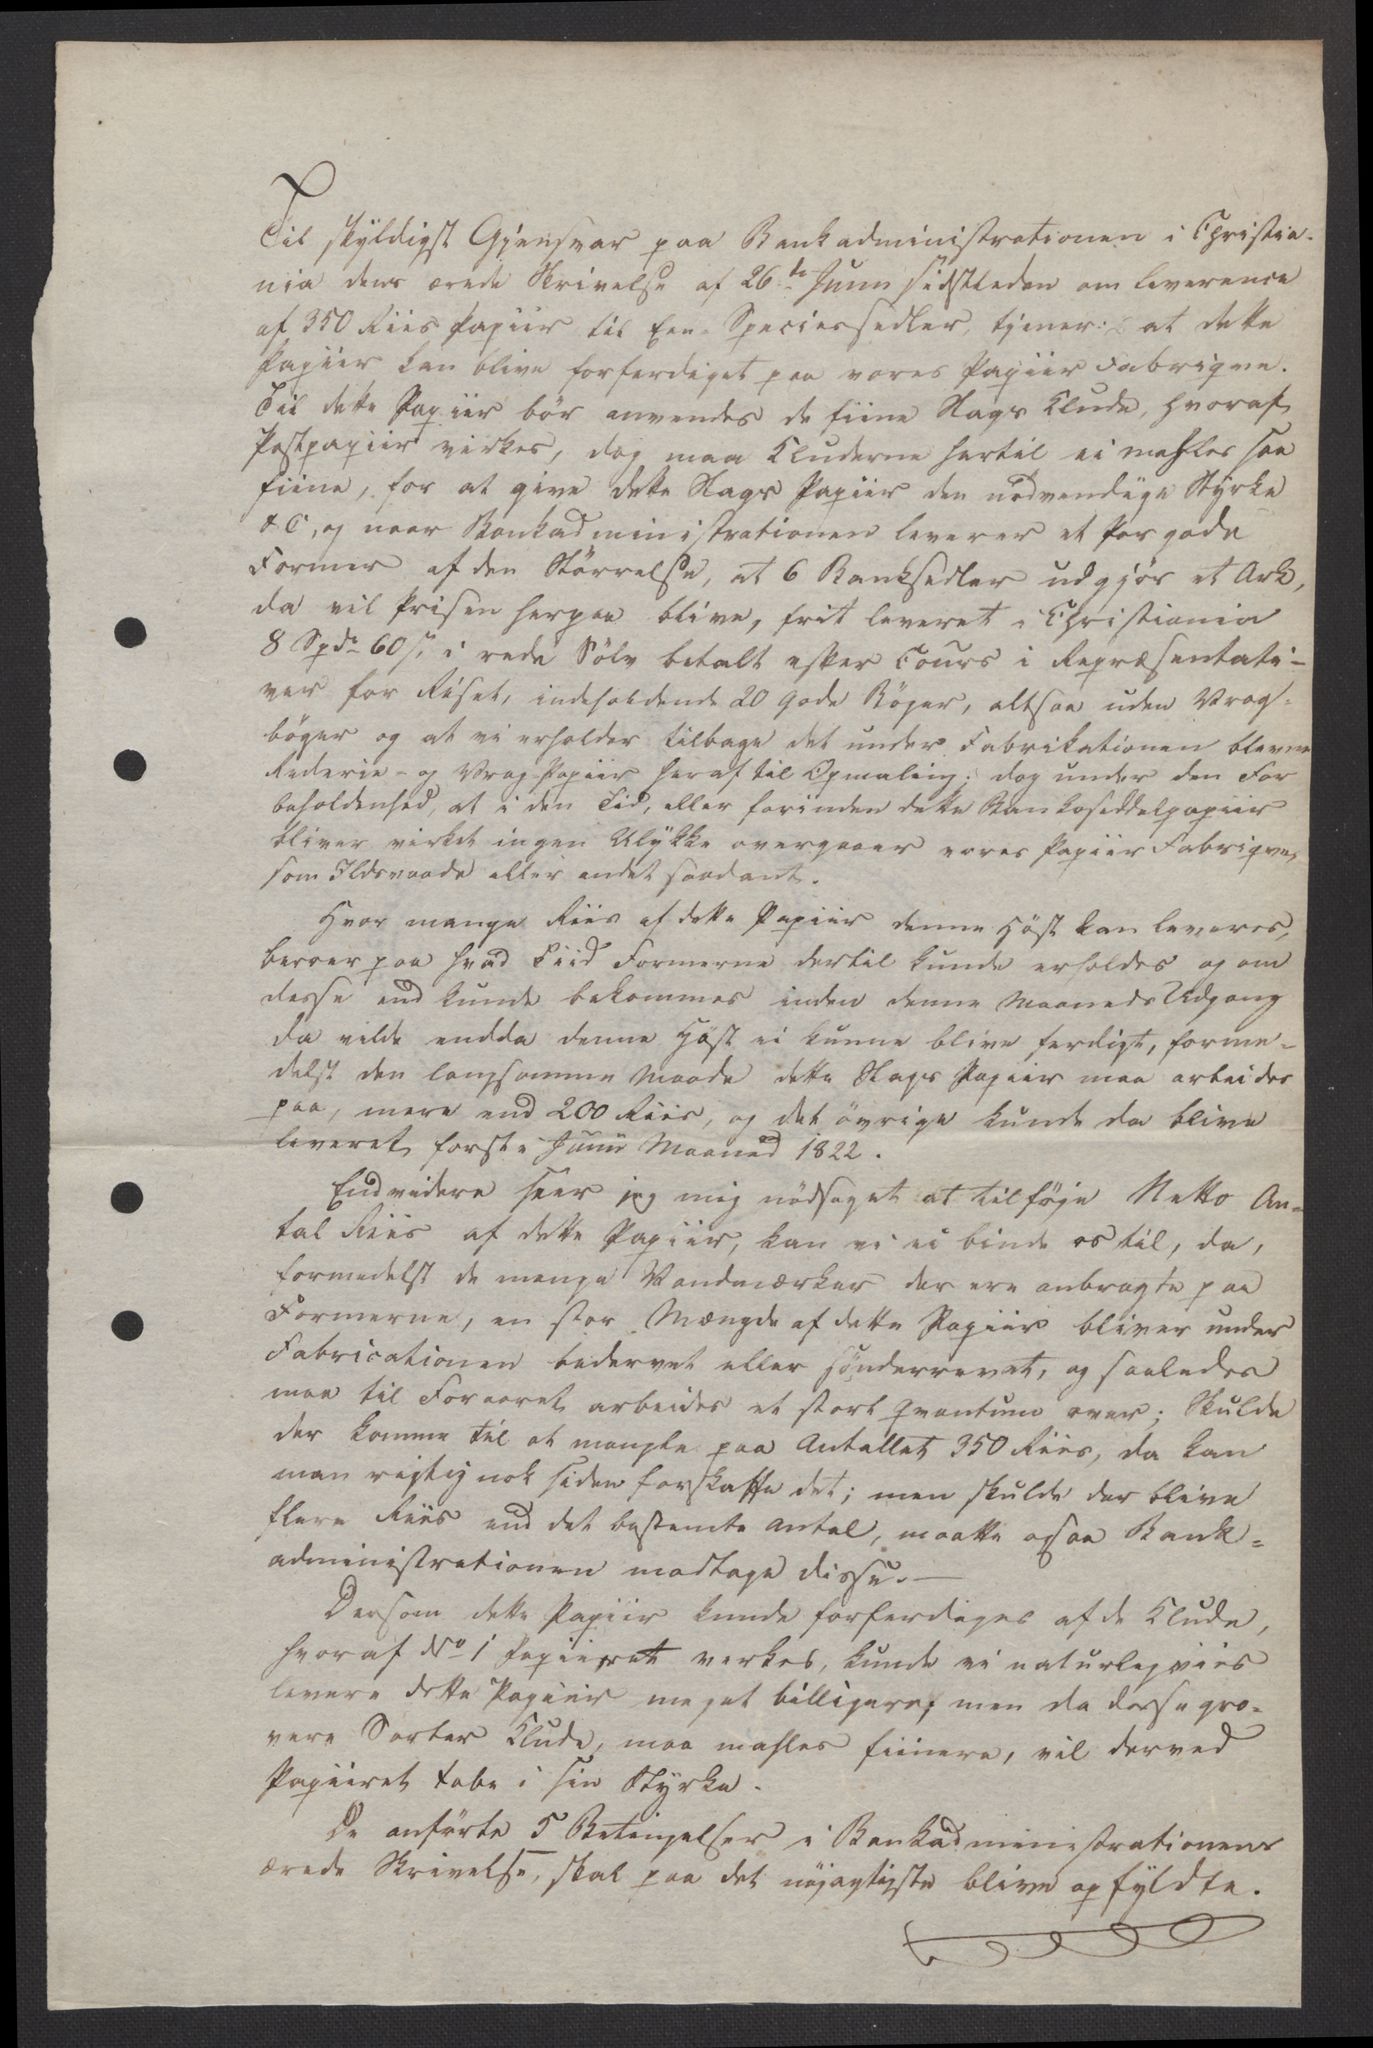 Til skyldigst Gjensvar paa Bankadministrationen i Christia-
nia dens ærede Skrivelse af 26de Junii sidstleden om leverence
af 350 Riis Papiir til Een-Speciessedler, tjener: at dette
Papiir kan blive forferdiget paa vores Papiir Fabriqve.
Til dette Papiir bör anvendes de fiine Slags Klude, hvoraf
Postpapiir virkes, dog maa Kluderne hertil ei mahles saa
fiine, for at give dette Slags Papiir den nödvendige Styrke
&c, og naar Bankadministrationen leverer et Par gode
Former af den Störrelse, at 6 Banksedler udgjör et Ark,
da vil Prisen herpaa blive, frit leveret i Christiania
8 Spd 60 s, i rede Sölv betalt efter Cours i Repræsentati-
ver for Riset, indeholdende 20 gode Böger, altsaa uden Vrag-
böger og at vi erholder tilbage det under Fabrikationen blevne
Rederie- og Vrag-Papiir heraf til Opmaling; dog under den For
beholdenhed, at i den Tid, eller forinden dette Bankoseddelpapiir
bliver virket ingen Ulykke overgaaer vores Papiir Fabriqve,
som Ildsvaade eller andet saadant.
Hvor mange Riis af dette Papiir denne Höst kan leveres,
beroer paa hvad Tiid Formerne dertil kunde erholdes og om
desse end kunde bekommes inden denne Maaneds Udgang
da vilde endda denne Höst ei kunne blive ferdigt, forme-
delst den langsomme Maade dette Slags Papiir maa arbeides
paa, mere end 200 Riis, og det övrige kunde da blive
leveret forst i Junii Maaned 1822.
Endvidere seer jeg mig nödsaget at tilföje Netto An-
tal Riis af dette Papiir, kan vi ei binde os til, da,
formedelst de mange Vandmærker der ere anbragte paa
Formerne, en stor Mængde af dette Papiir bliver under
Fabricationen bedervet eller sönderrevet, og saaledes
maa til Foraaret arbeides et stort Qvantum over; Skulde
der komme til at mangle paa Antallet 350 Riis, da kan
man rigtig nok siden forskaffe det; men skulde der blive
flere Riis end det bestemte Antal, maatte ogsaa Bank-
administrationen modtage disse. —
Dersom dette Papiir kunde forferdiges af de Klude,
hvoraf No 1 Papiiret verkes, kunde vi naturligviis
levere dette Papiir meget billigere; men da desse gro-
vere Sorter Klude, maa mahles fiinere, vil derved
Papiiret tabe i sin Styrke.
De anförte 5 Betingelser i Bankadministrationens
ærede Skrivelse, skal paa det nöjagtigste blive opfyldte.